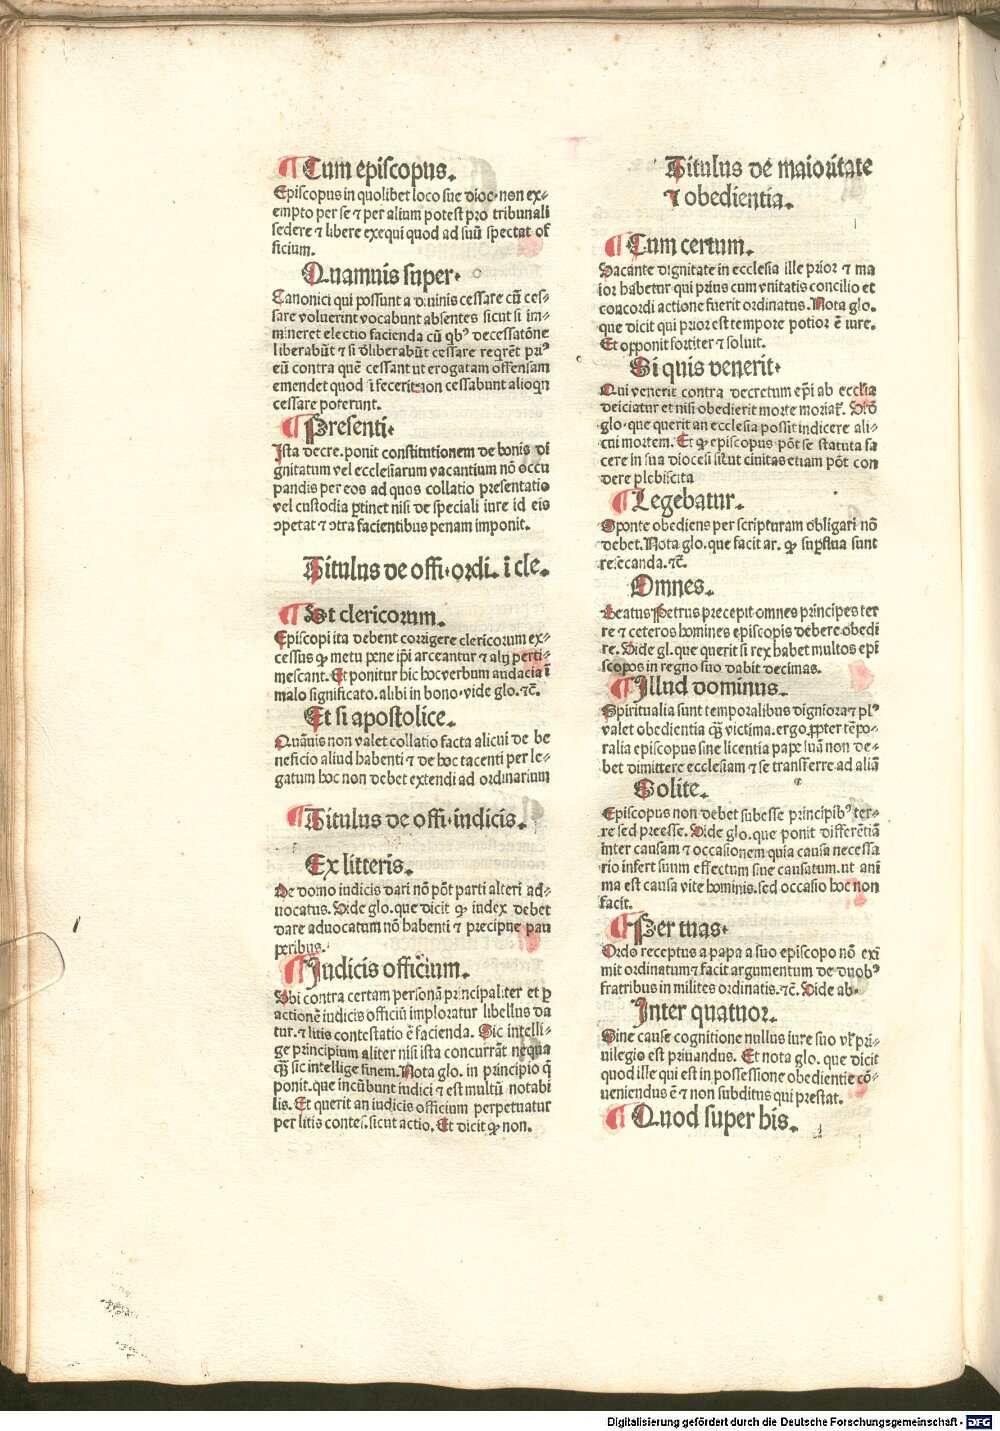 ¶ Cum episcopus.
Episcopus in quolibet loco sue dioc. non ex-
empto per se ⁊ per alium potest pro tribunali
sedere ⁊ libere exequi quod ad suū spectat of
ficium.
Quamuis super.
Canonici qui possunt a diuinis cessare cū ces-
sare voluerint vocabunt absentes sicut si im-
mineret electio facienda cū qbꝰ decessatōne
liberabūt ⁊ si d̄liberabūt cessare reqrēt priꝰ
eū contra quē cessant ut erogatam offensam
emendet quod si fecerit non cessabunt alioqn̄
cessare poterunt.
¶ Presenti.
Ista decre. ponit constitutionem de bonis di
gnitatum vel ecclesiarum vacantium nō occu
pandis per eos ad quos collatio presentatio
vel custodia ꝑtinet nisi de speciali iure id eis
ꝯpetat ⁊ ꝯtra facientibus penam imponit.
Titulus de offi. ordi. i cle.
¶ Ut clericorum.
Episcopi ita debent corrigere clericorum ex-
cessus ꝙ metu pene ip̄i arceantur ⁊ alij perti-
mescant. Et ponitur hic hoc verbum audacia ī
malo significato. alibi in bono. vide glo. ⁊c̄.
Et si apostolice.
Quāuis non valet collatio facta alicui de be
neficio aliud habenti ⁊ de hoc tacenti per le-
gatum hoc non debet extendi ad ordinarium
¶ Titulus de offi. iudicis.
Ex litteris.
De domo iudicis dari nō pōt parti alteri ad-
uocatus. Vide glo. que dicit ꝙ iudex debet
dare aduocatum nō habenti ⁊ precipue pau
peribus.
¶ Judicis officium.
Ubi contra certam personā principaliter et ꝑ
actionē iudicis officiū imploratur libellus da
tur. ⁊ litis contestatio ē facienda. Sic intelli-
ge principium aliter nisi ista concurrāt nequa
qꝫ sic intellige finem. Nota glo. in principio q̄
ponit. que incūbunt iudici ⁊ est multū notabi
lis. Et querit an iudicis officium perpetuatur
per litis contes. sicut actio. Et dicit ꝙ non.
Titulus de maioritate
⁊ obedientia.
¶ Cum certum.
Vacante dignitate in ecclesia ille prior ⁊ ma
ior habetur qui prius cum vnitatis concilio et
concordi actione fuerit ordinatus. Nota glo.
que dicit qui prior est tempore potior ē iure.
Et opponit fortiter ⁊ soluit.
Si quis venerit.
Qui venerit contra decretum ep̄i ab ecclīa
deiciatur et nisi obedierit morte moriat̄.
glo. que querit an ecclesia possit indicere ali-
cui mortem. Et ꝙ episcopus pōt se statuta fa
cere in sua diocesi sicut ciuitas etiam pōt con
dere plebiscita
¶ Legebatur.
Sponte obediens per scripturam obligari nō
debet. Nota glo. que facit ar. ꝙ suꝑflua sunt
resecanda. ⁊c̄.
Omnes.
Beatus Petrus precepit omnes principes ter
re ⁊ ceteros homines episcopis debere obedi
re. Vide gl. que querit si rex habet multos epi
scopos in regno suo dabit decimas.
¶ Illud dominus.
Spiritualia sunt temporalibus digniora ⁊ plꝰ
valet obedientia qꝫ victima. ergo ꝓpter tēpo-
ralia episcopus sine licentia pape suā non de-
bet dimittere ecclesiam ⁊ se transferre ad aliā
Solite.
Episcopus non debet subesse principibꝰ ter-
re sed preesse. Vide glo. que ponit differētiā
inter causam ⁊ occasionem quia causa necessa
rio infert suum effectum siue causatum. ut ani
ma est causa vite hominis. sed occasio hoc non
facit.
¶ Per tuas.
Ordo receptus a papa a suo episcopo nō exi
mit ordinatum ⁊ facit argumentum de duobꝰ
fratribus in milites ordinatis. ⁊c̄. Vide ab.
Inter quatuor.
Sine cause cognitione nullus iure suo vl̄ pri-
uilegio est priuandus. Et nota glo. que dicit
quod ille qui est in possessione obedientie cō-
ueniendus ē ⁊ non subditus qui prestat.
¶ Quod super his.
Digitalisierung gefördert durch die Deutsche Forschungsgemeinschaft - DFG